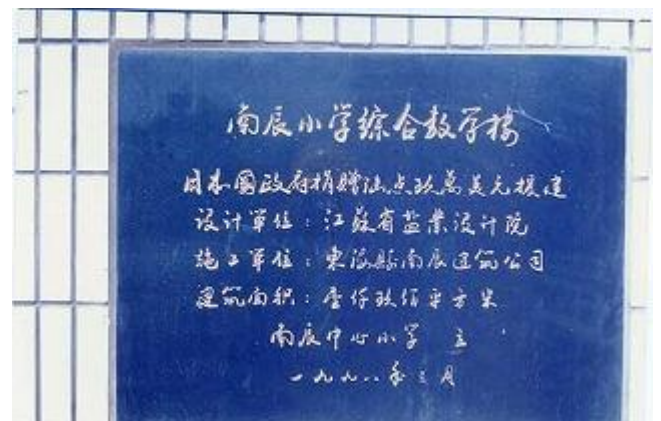 南辰小学综合教学楼
日本國政府捐赠汕点玖萬美元援建
设计單位：江蘇省盐業设计院
施工單位：東海縣南辰建筑公司
建筑面积：壹仟玖佰平方米
南辰中心小学 立
一九九八年三月